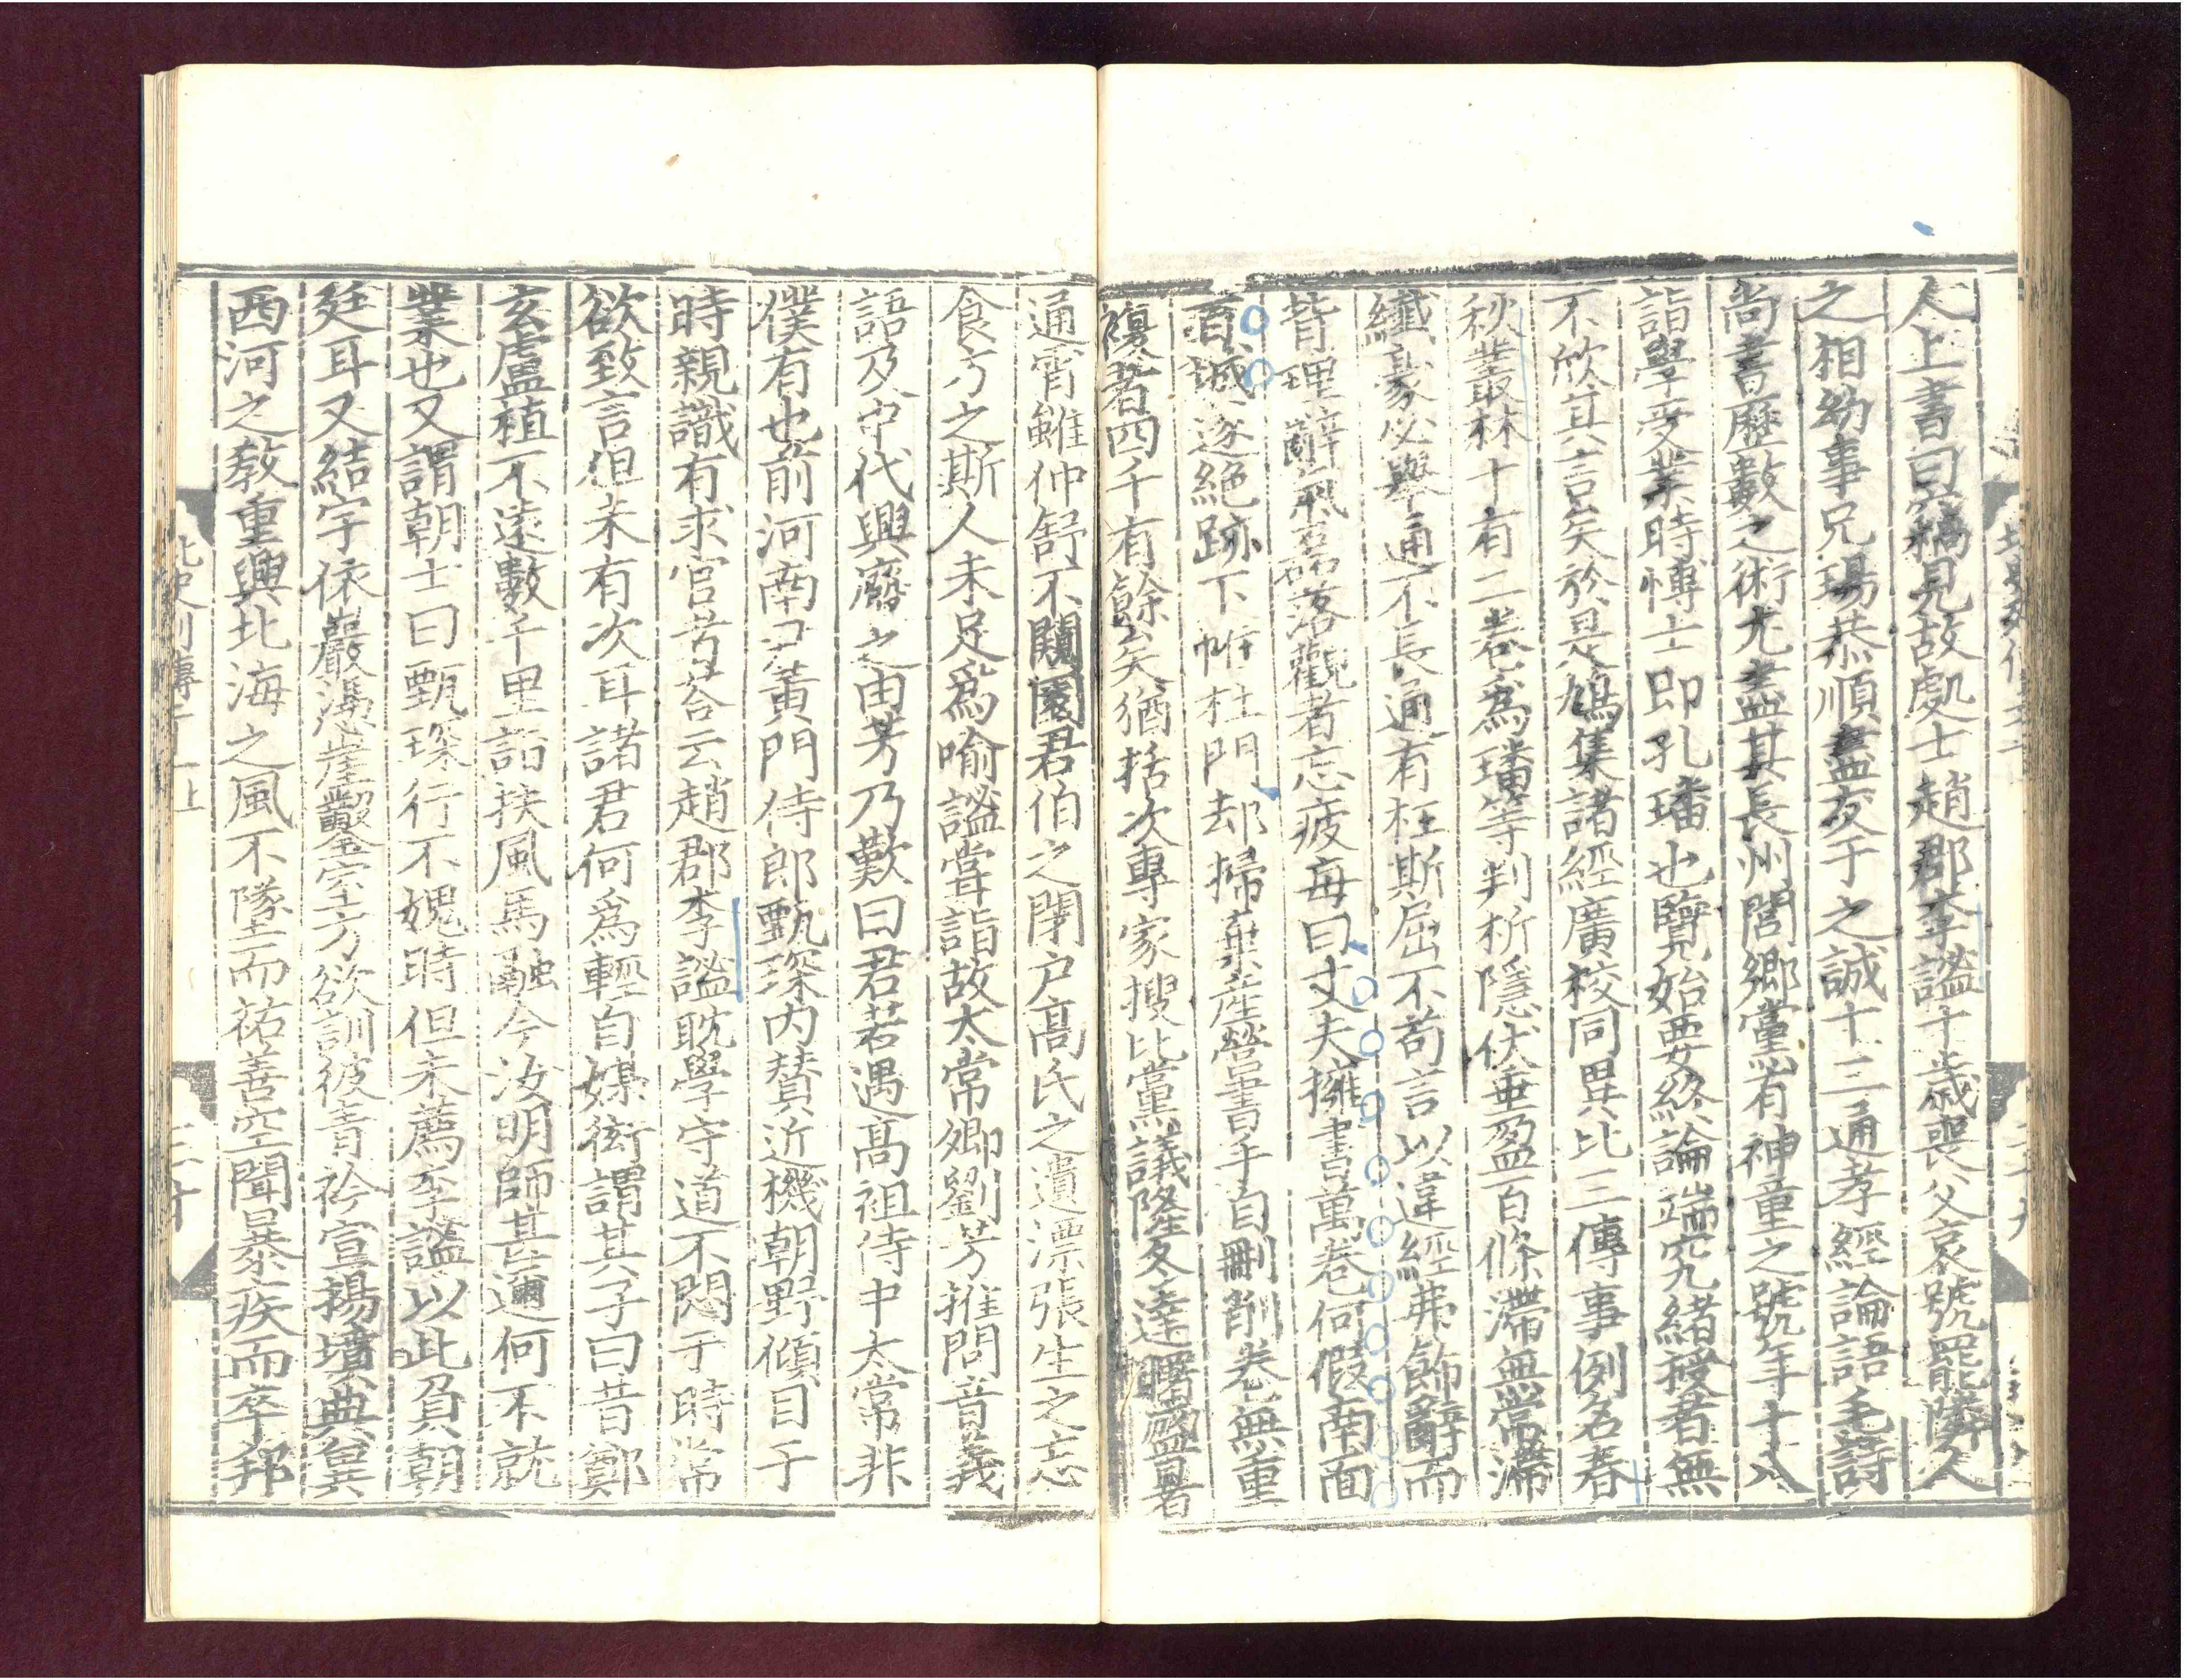 人上書曰竊見故處士趙郡李謐十歲喪父哀號罷隣人
之相幼事兄瑒恭順盡友于之誠十三通孝經論語毛詩
尚書歷數之術尤盡其長州閭鄉黨有神童之號年十八
詣學受業時博士即孔璠也覽始要終論端究緒授者無
不欣其言矣於是鳩集諸經廣校同異比三傳事例名春
秋叢林十有二卷爲璠等判析隱伏垂盈百條滯無常滯
纖豪必舉通不長通有枉斯屈不苟言以違經弗飾辭而
背理辭氣磊落觀者忘疲每曰丈夫擁書萬卷何假南面
百城遂絕跡下帷杜門却掃棄產營書手自刪削卷無重
複者四千有餘矣猶括次專家搜比黨議隆冬達曙盛暑
通宵雖仲舒不闚園君伯之閉户高氏之遺漂張生之忘
食方之斯人未足爲喻謐嘗詣故太常卿劉芳推問音義
語及中代興廢之由芳乃歎曰君若遇高祖侍中太常非
僕有也前河南尹黃門侍郎甄琛内賛近機朝野傾目于
時親識有求官者荅云趙郡李謐耽學守道不悶于時常
欲致言但未有次耳諸君何爲輕自媒衒謂其子曰昔鄭
玄盧植不遠數千里詣扶風馬融今汝明師甚邇何不就
業也又謂朝士曰甄琛行不媿時但未薦李謐以此負朝
廷耳又結宇依巖憑崖鑿室方欲訓彼青衿宣揚墳典冀
西河之教重興北海之風不墜而祐善空聞暴疾而卒邦
北史列傳二十一上
三十